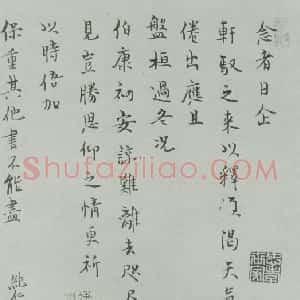 念者日企
軒馭之來以釋項渴天
倦出應且
盤桓過冬況
伯康初安諒難離去咫
見豈勝思仰之情更祈
以時倍加
保重其他書不能盡
純仁
Shufaziliao.com